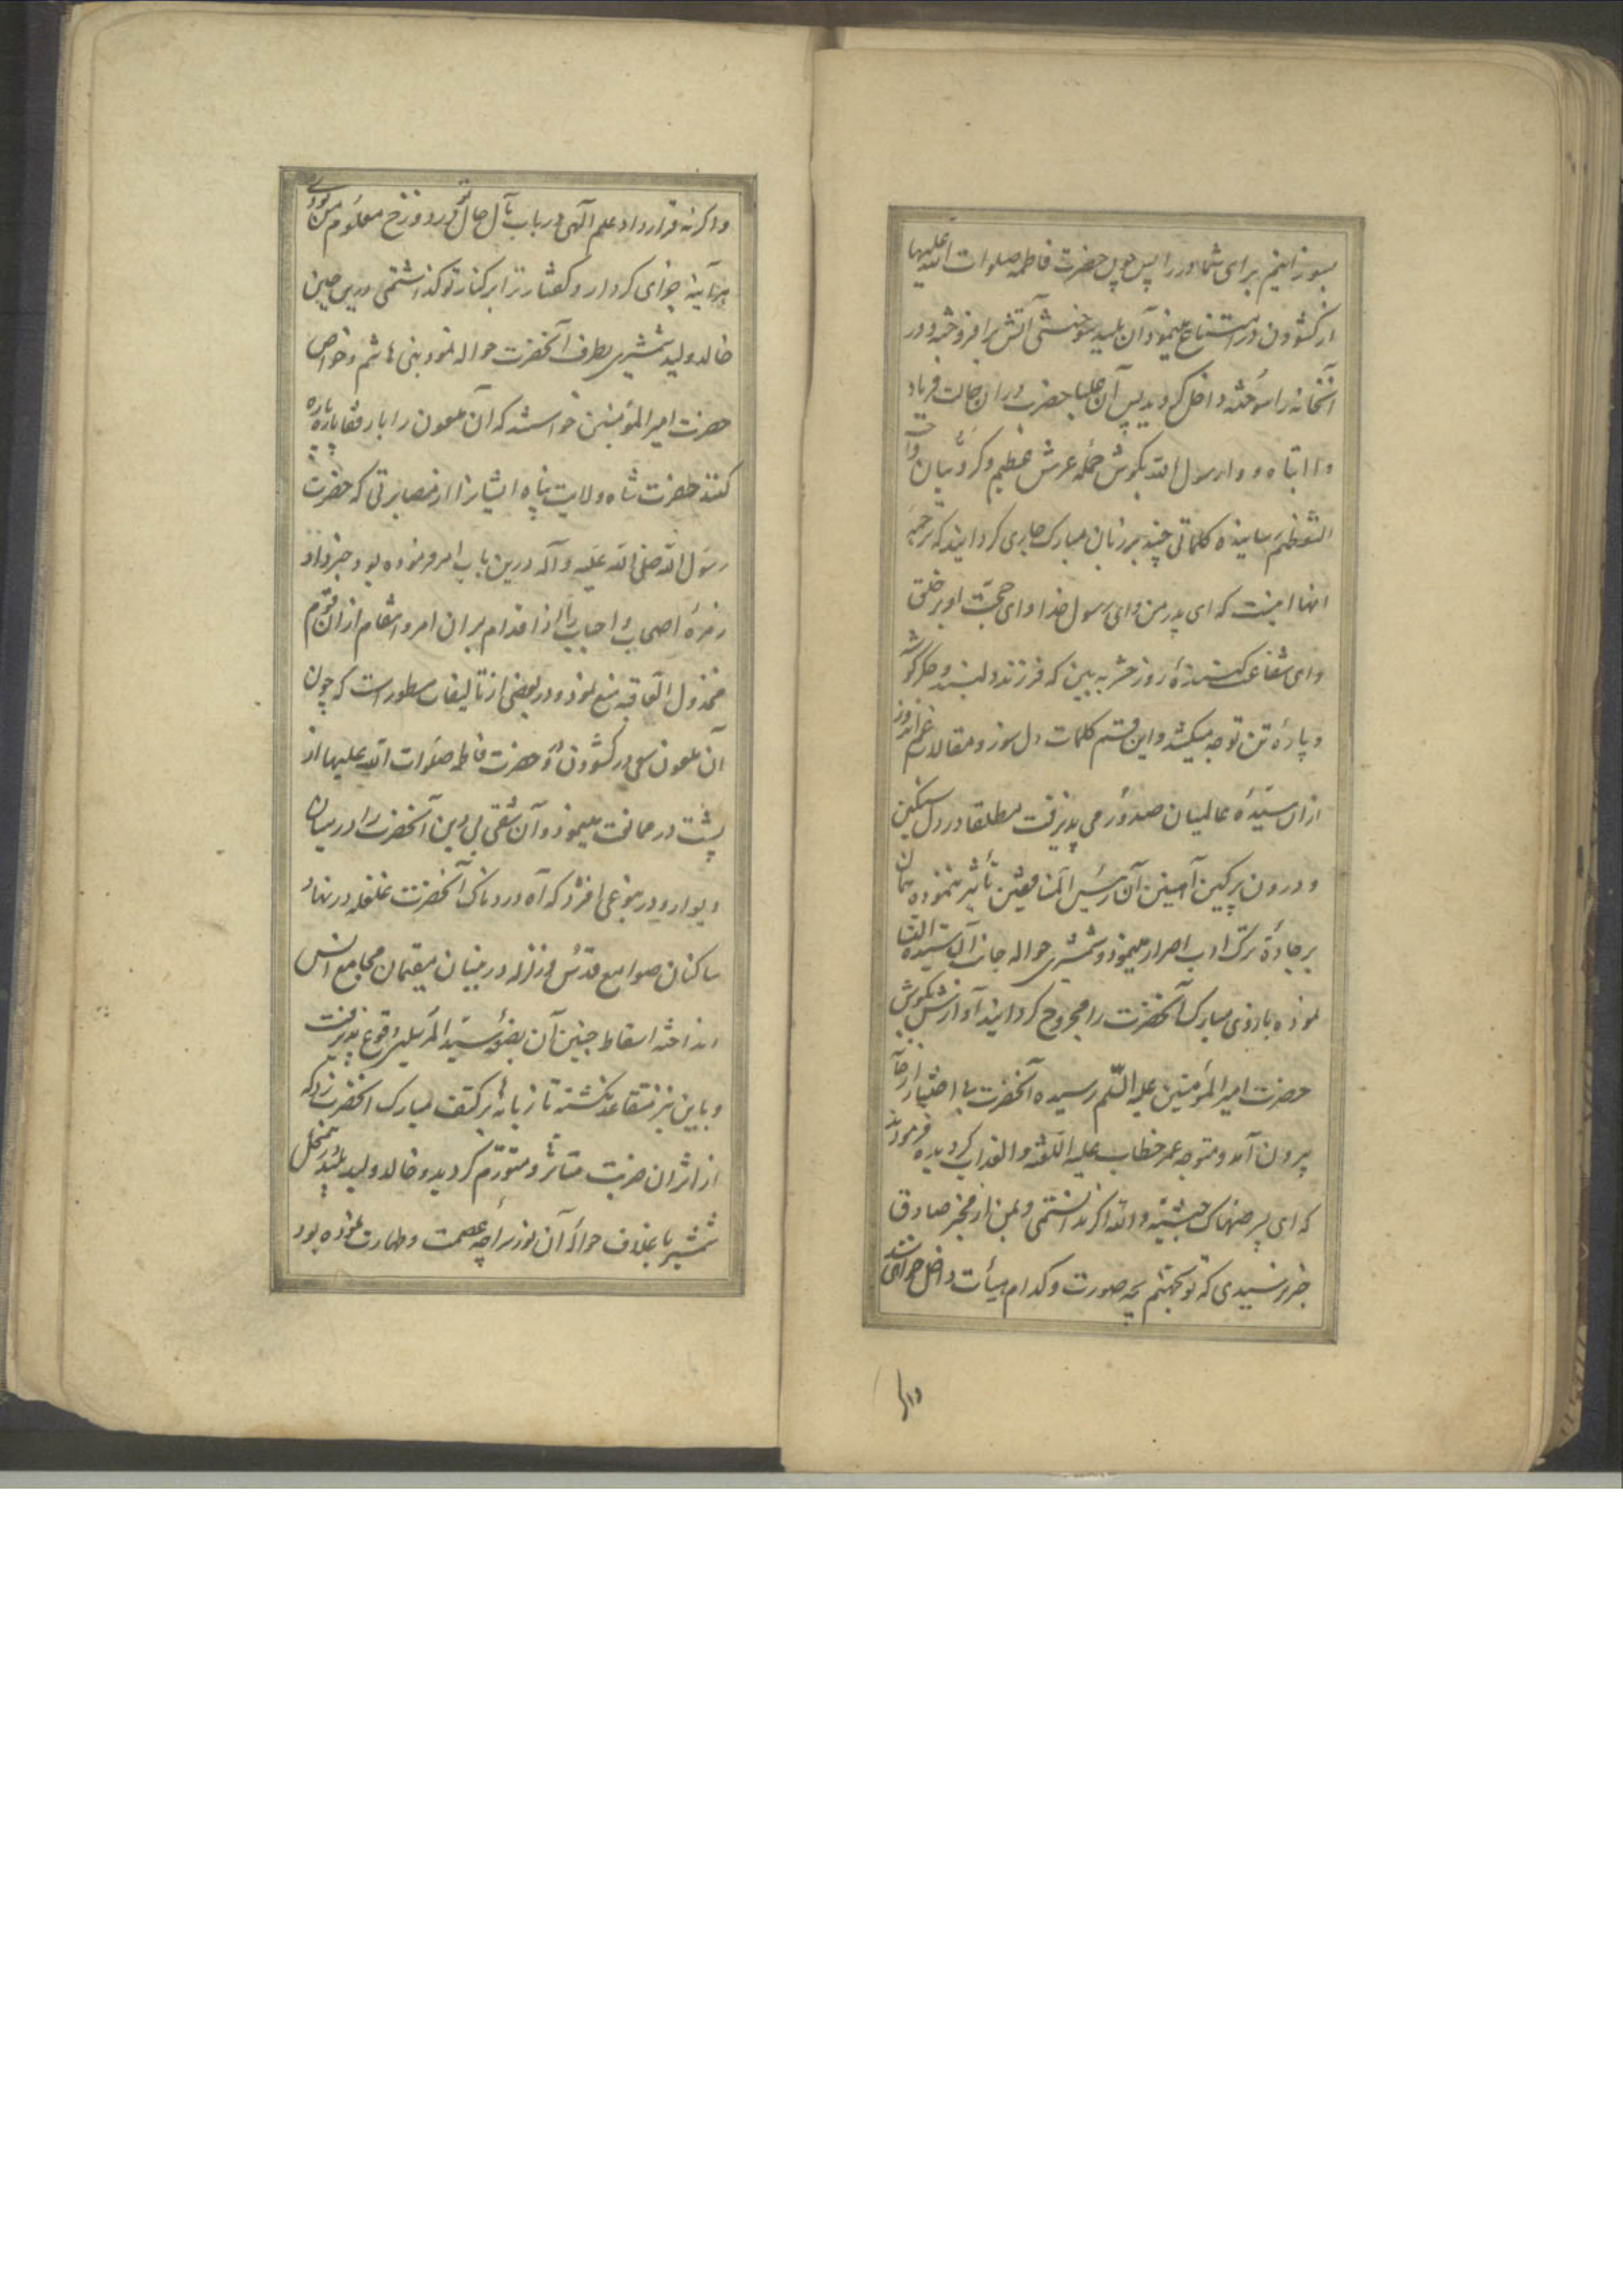 بسوزانیم برای شما در را پس چون حضرت فاطمه صلوات الله علیها
از کشودن در امتناع مینمود آن پلید آتش برافروخته و در
آنخانه را سوخته داخل کردید پس آن حضرت در ان حالت فریاد
وا ابتاه و وا رسول الله بکوش حمله عرش عظیم و کروبیان
رسانیده کلماتی چند بر زبان مبارک جاری کردانیدند که ترجمه
انها اینست که ای پدر من و ای رسول خدا و ای حجت او بر خلق
و ای شفاعت کننده روز حشر به بین که فرزند دلبند و جکر کوشه
و پاره تن تو چه میکشد و این قسم کلمات دل سوز و مقالات غم اندوز
از ان سیده عالمیان صدور می پذیرفت مطلقا در دل سنکین
و درون پرکین آن رئیس المنافقین تأثیر ننموده همان
بر جاده ترک ادب اصرار مینمود و شمشیری حواله جانب آن سیده النسا
نموده بازوی مبارک آنحضرت را مجروح کردانید آوازش بکوش
حضرت امیر المؤمنین علیه السلم رسیده آنحضرت بی اختیار از جا
بیرون آمد و متوجه عمر خطاب علیه اللعنه و العذاب کردیده فرمودند
که ای پسر صهاک حبشیه و الله اکر ندانستمی و بمن از مخبر صادق
خبر نرسیدی که تو بجهنم بچه صورت و کدام هیأت داخل خواهی شد
و اکر نه قرارداد علم الهی در باب مآل حال تو در دوزخ معلوم من بودی
هرآینه جزای کردار و کفتار ترا بر کنار تو کذاشتمی درین حین
خالد ولید شمشیری بطرف آنحضرت حواله نمود بنی هاشم و خواص
حضرت امیر المؤمنین خواستند که آن ملعون را با رفقا پاره پاره
کنند حضرت شاه ولایت پناه ایشانرا از مصابرتی که حضرت
رسول الله صلی الله علیه و آله درین باب امر فرموده بود خبر داد
زمره اصحاب و احباب را از اقدام بر ان امر و انتقام از ان قوم
مخذول العاقبه منع نمود و در بعضی از تألیفات مسطور است که چون
آن ملعون سعی در کشودن در و حضرت فاطمه صلوات الله علیها از
پشت در ممانعت مینمود و آن شقی بی دین آنحضرت را در میان
دیوار و در بنوعی افشرد که آه دردناک آنحضرت غلغله در نهاد
ساکنان صوامع قدس و زلزله در بنیان مقیمان مجامع انس
انداخته اسقاط جنین آن بضعه سید المرسلین وقوع پذیرفت
و باین نیز متقاعد نکشته تازیانه بر کتف مبارک انحضرت زد که
از اثر ان ضربت متأثر و متورم کردید و خالد ولید پلید
شمشیر با غلاف حواله آن نور سراچه عصمت و طهارت نموده بود
واکر